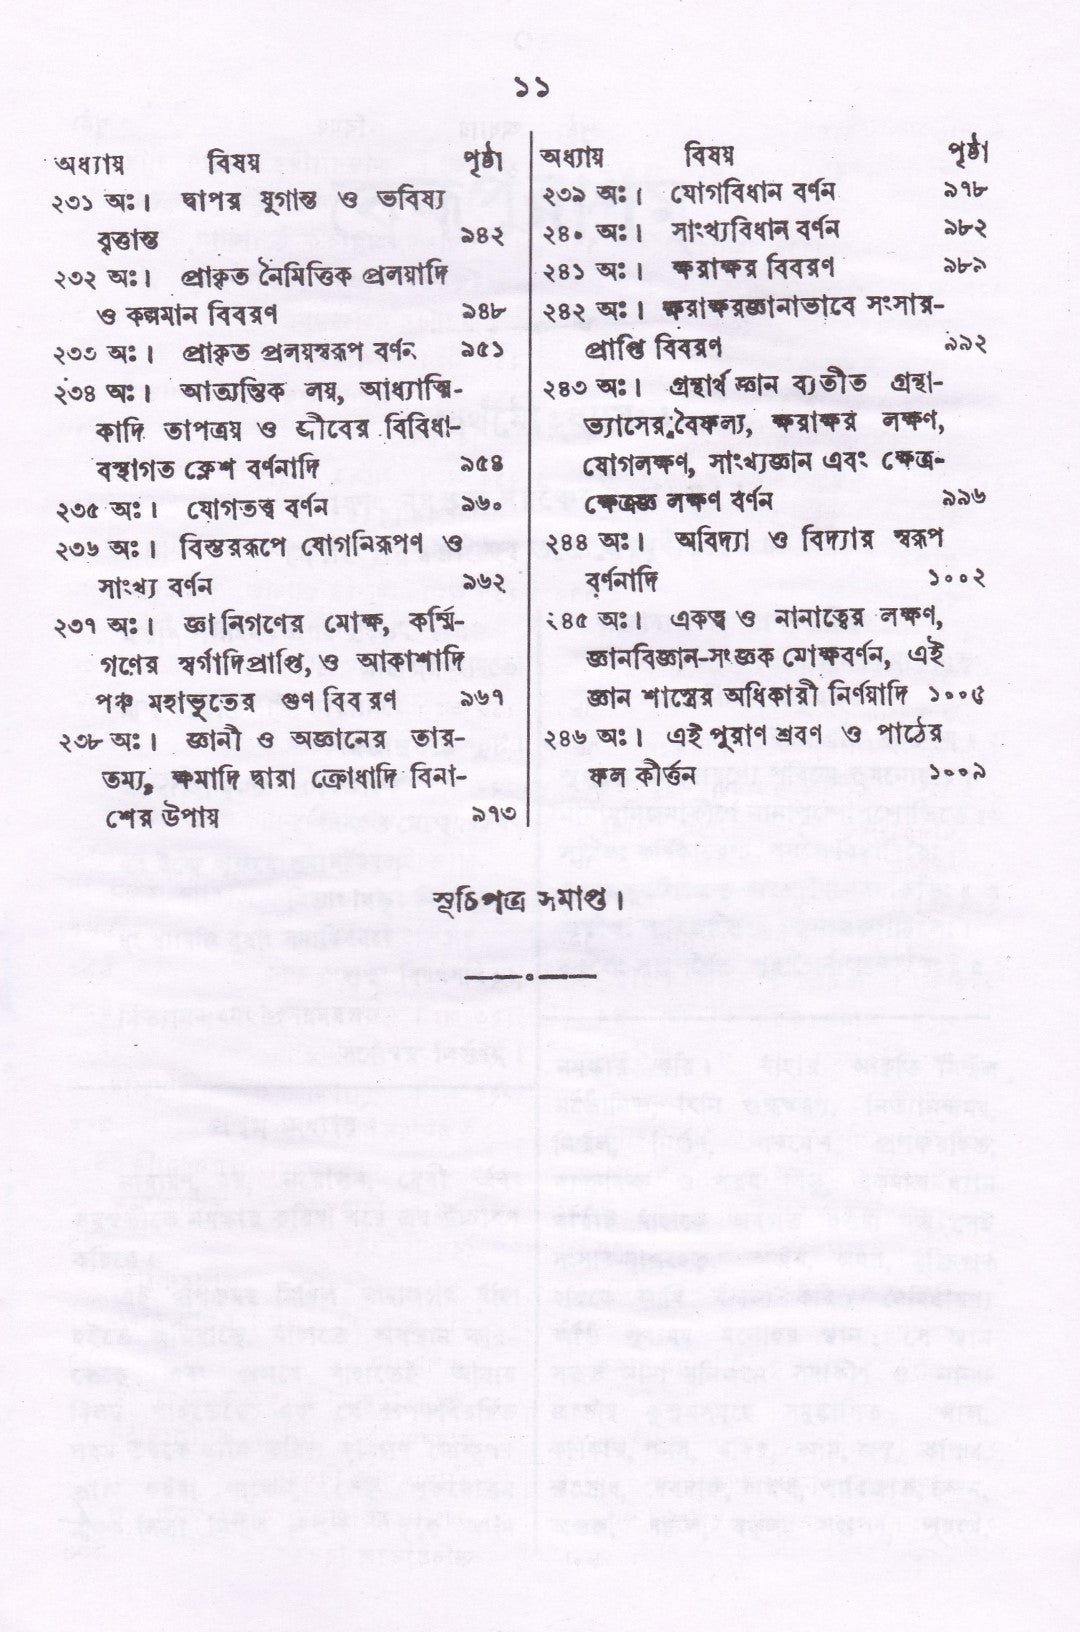 ১১
অধ্যায় বিষয় পৃষ্ঠা
২৩১ অঃ। দ্বাপর যুগান্ত ও ভবিষ্য
বৃত্তান্ত ৯৪২
২৩২ অঃ। প্রাকৃত নৈমিত্তিক প্রলয়াদি
ও কল্পমান বিবরণ ৯৪৮
২৩৩ অঃ। প্রাকৃত প্রলয়স্বরূপ বর্ণন ৯৫১
২৩৪ অঃ। আত্যন্তিক লয়, আধ্যাত্মি-
কাদি তাপত্রয় ও জীবের বিবিধা-
বস্থাগত ক্লেশ বর্ণনাদি ৯৫৪
২৩৫ অঃ। যোগতত্ত্ব বর্ণন ৯৬০
২৩৬ অঃ। বিস্তররূপে যোগনিরূপণ ও
সাংখ্য বর্ণন ৯৬২
২৩৭ অঃ। জ্ঞানিগণের মোক্ষ, কর্ম্মি-
গণের স্বর্গাদিপ্রাপ্তি, ও আকাশাদি
পঞ্চ মহাভূতের গুণ বিবরণ ৯৬৭
২৩৮ অঃ। জ্ঞানী ও অজ্ঞানের তার-
তম্য, ক্ষমাদি দ্বারা ক্রোধাদি বিনা-
শের উপায় ৯৭৩
অধ্যায় বিষয় পৃষ্ঠা
২৩৯ অঃ। যোগবিধান বর্ণন ৯৭৮
২৪০ অঃ। সাংখ্যবিধান বর্ণন ৯৮২
২৪১ অঃ। ক্ষরাক্ষর বিবরণ ৯৮৯
২৪২ অঃ। ক্ষরাক্ষরজ্ঞানাভাবে সংসার-
প্রাপ্তি বিবরণ ৯৯২
২৪৩ অঃ। গ্রন্থার্থ জ্ঞান ব্যতীত গ্রন্থা-
ভ্যাসের বৈফল্য, ক্ষরাক্ষর লক্ষণ,
যোগলক্ষণ, সাংখ্যজ্ঞান এবং ক্ষেত্র-
ক্ষেত্রজ্ঞ লক্ষণ বর্ণন ৯৯৬
২৪৪ অঃ। অবিদ্যা ও বিদ্যার স্বরূপ
বর্ণনাদি ১০০২
২৪৫ অঃ। একত্ব ও নানাত্বের লক্ষণ,
জ্ঞানবিজ্ঞান-সংজ্ঞক মোক্ষবর্ণন, এই
জ্ঞান শাস্ত্রের অধিকারী নির্ণয়াদি ১০০৫
২৪৬ অঃ। এই পুরাণ শ্রবণ ও পাঠের
ফল কীর্ত্তন ১০০৯
সূচিপত্র সমাপ্ত।